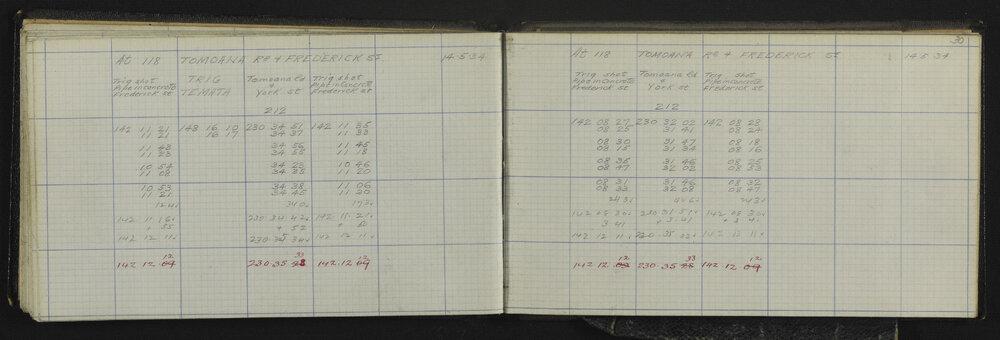 At 118 TOMOANA Rd & FREDERICK St 14.5.34
Trig shot TRIG Tomoana Rd Trig shot
Pipe in Concrete TEMATA & Pipe in Concrete
Frederick st York st Frederick st
212
142 11 21 148 16 10 230 34 51 142 11 35
11 21 16 17 34 37 11 33
11 43 34 56 11 45
11 23 34 55 11 18
10 54 34 25 10 46
11 08 34 35 11 20
10 53 34 38 11 06
11 21 34 45 11 20
124 340 173
142 11 16 230 34 42 142 11 21
+ 55 + 52 + 50
142 12 11 230 35 34 142 12 11
12 33 12
142.12.09 230.35.28 142.12 09
30
At 118 TOMOANA Rd & FREDERICK St 14.5.34
Trig shot Tomoana Rd Trig shot
Pipe in Concrete & Pipe in Concrete
Frederick st York st Frederick st
212
142 08 27 230 32 02 142 08 28
08 25 31 41 08 24
08 30 31 47 08 18
08 15 31 34 08 16
08 35 31 46 08 25
08 47 32 02 08 53
08 31 31 46 08 32
08 33 32 08 08 47
243 406 243
142 08 30 230 31 51 142 08 30
3 41 + 3.41 + 3 41
142 12 11 230.35 32 142 12 11
12 33 12
142 12. 230.35 28 142 12 09